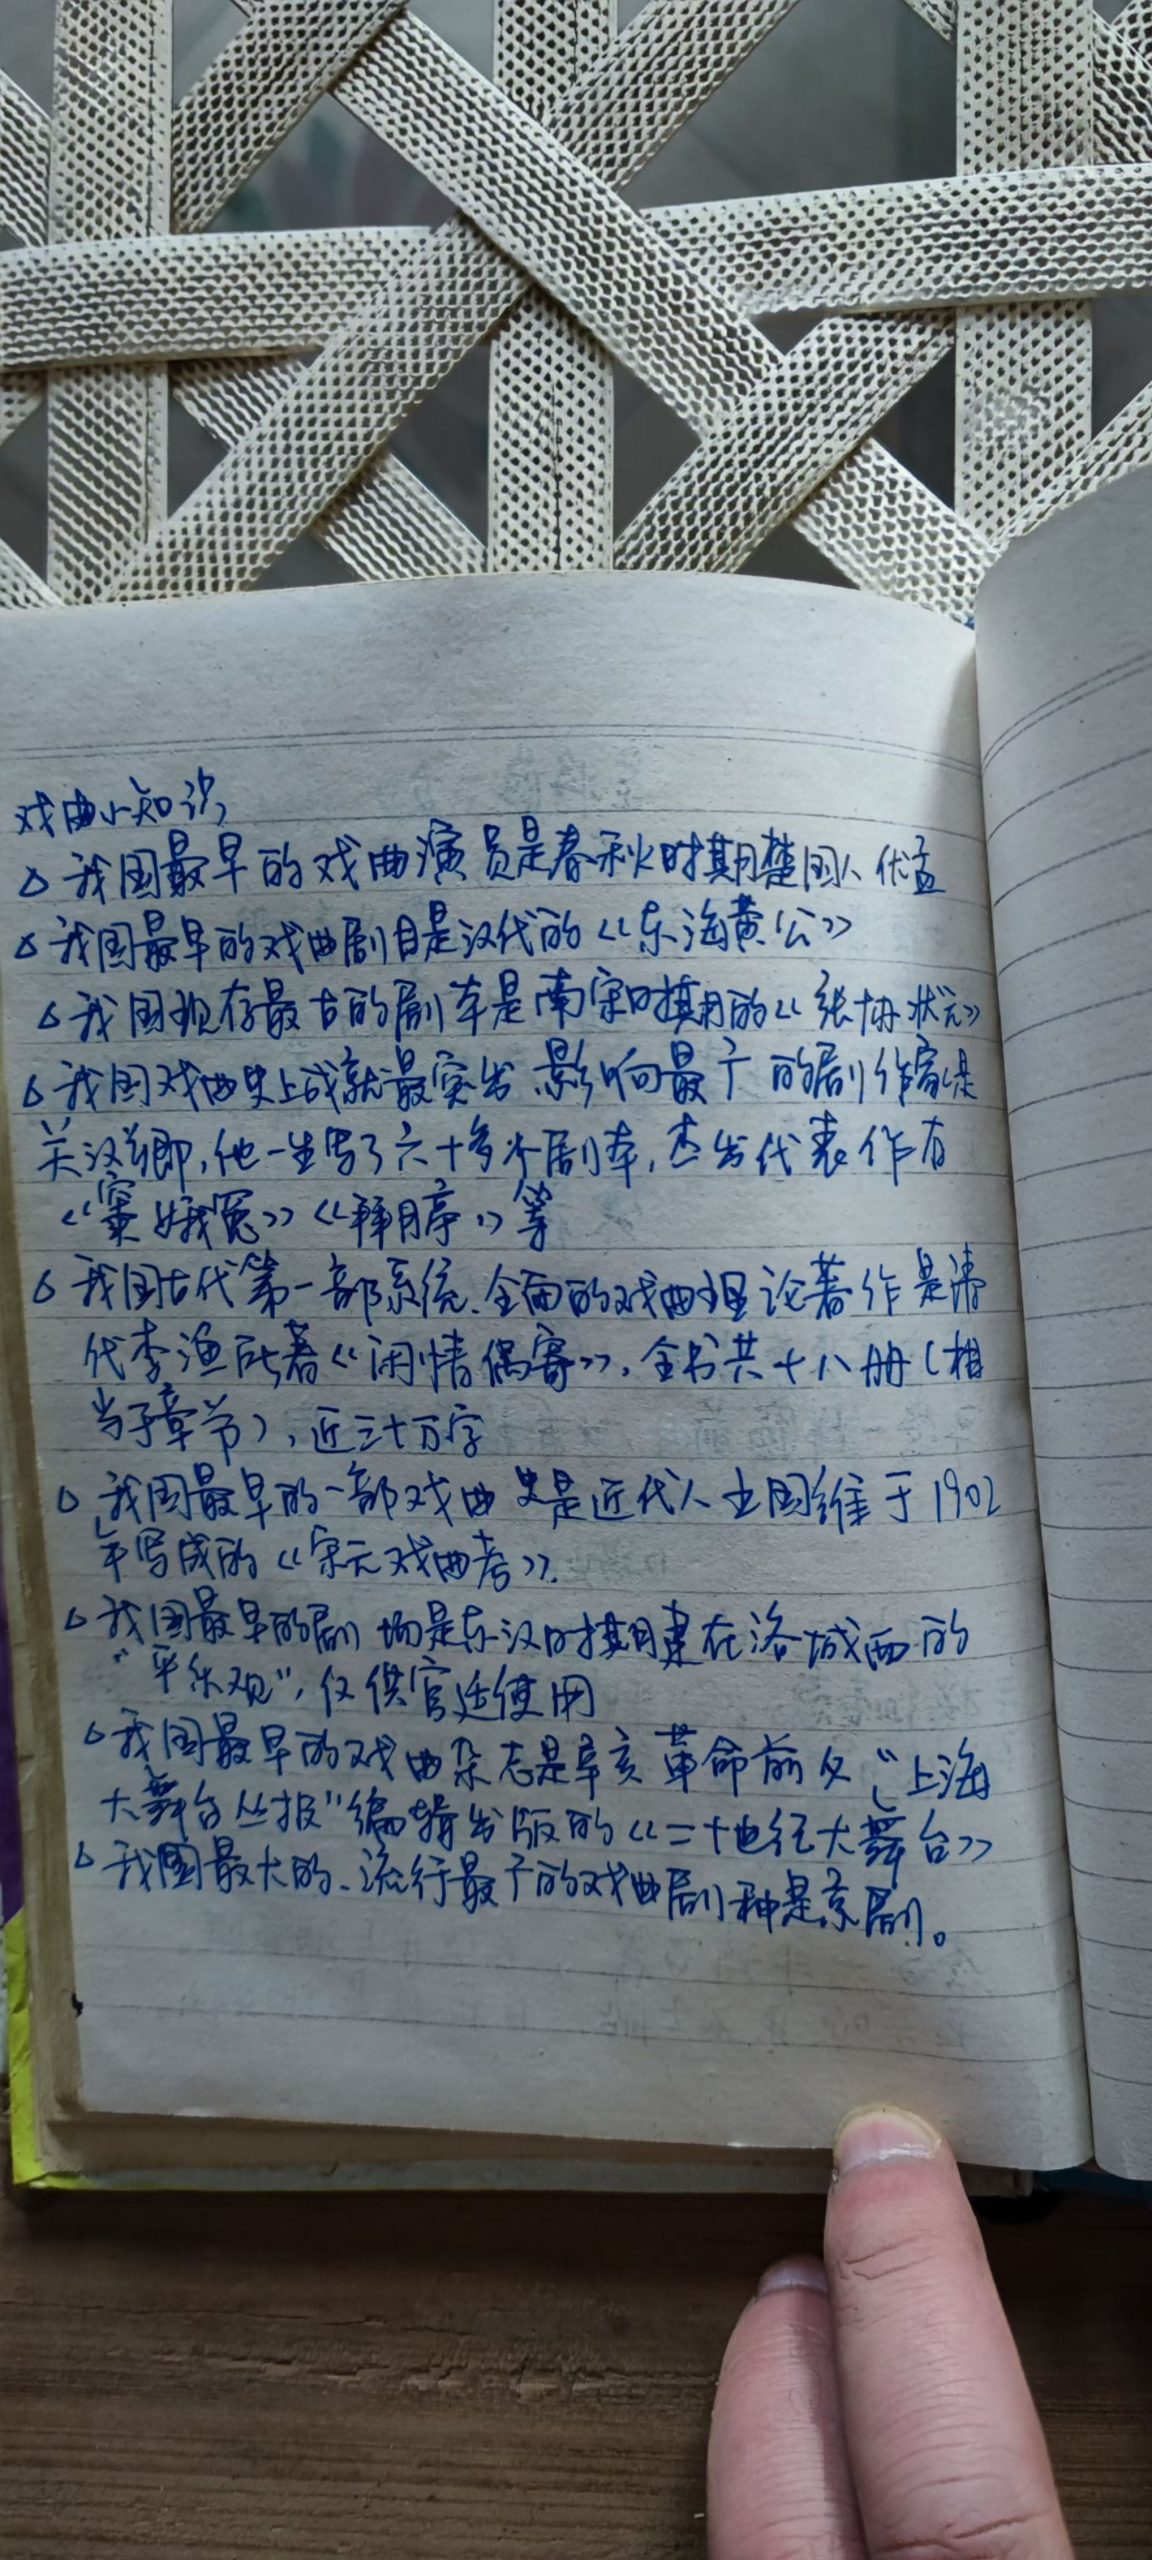 戏曲小知识
△我国最早的戏曲演员是春秋时期楚国人优孟
△我国最早的戏曲剧目是汉代的《东海黄公》
△我国现存最古的剧本是南宋时期的《张协状元》
△我国戏曲史上成就最突出 影响最广的剧作家是
关汉卿,他一生写了六十多个剧本,杰出代表作有
《窦娥冤》《拜月亭》等
△我国古代第一部系统、全面的戏曲理论著作是清
代李渔所著《闲情偶寄》,全书共十八册(相
当于章节),近三十万字
△我国最早的一部戏曲史是近代人王国维于1902
年写成的《宋元戏曲考》.
△我国最早的剧场是东汉时期建在洛城西的
“平乐观”,仅供官廷使用
△我国最早的戏曲杂志是辛亥革命前夕“上海
大舞台丛报”编辑出版的《二十世纪大舞台》
△我国最大的、流行最广的戏曲剧种是京剧。